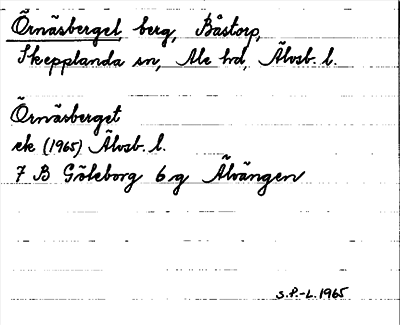 Örnäsberget berg, Båstorp,
Skepplanda sn, Ale hd, Älvsb. l.
Örnäsberget
ek (1965) Älvsb. l.
7 B Göteborg 6 g Älvängen
S.P.-L. 1965